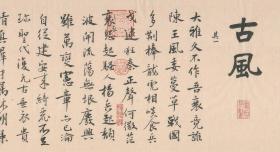 古風
其一
大雅久不作吾衰竟誰
陳王風委蔓草戰國
多荊榛龍虎相啖食兵
戈逮狂秦正聲何微茫
哀怨起騷人揚馬激頹
波開流蕩無垠廢興
雖萬變憲章亦已淪
自從建安來綺麗不足
珍聖代復元古垂衣貴
清真群才屬休明乘